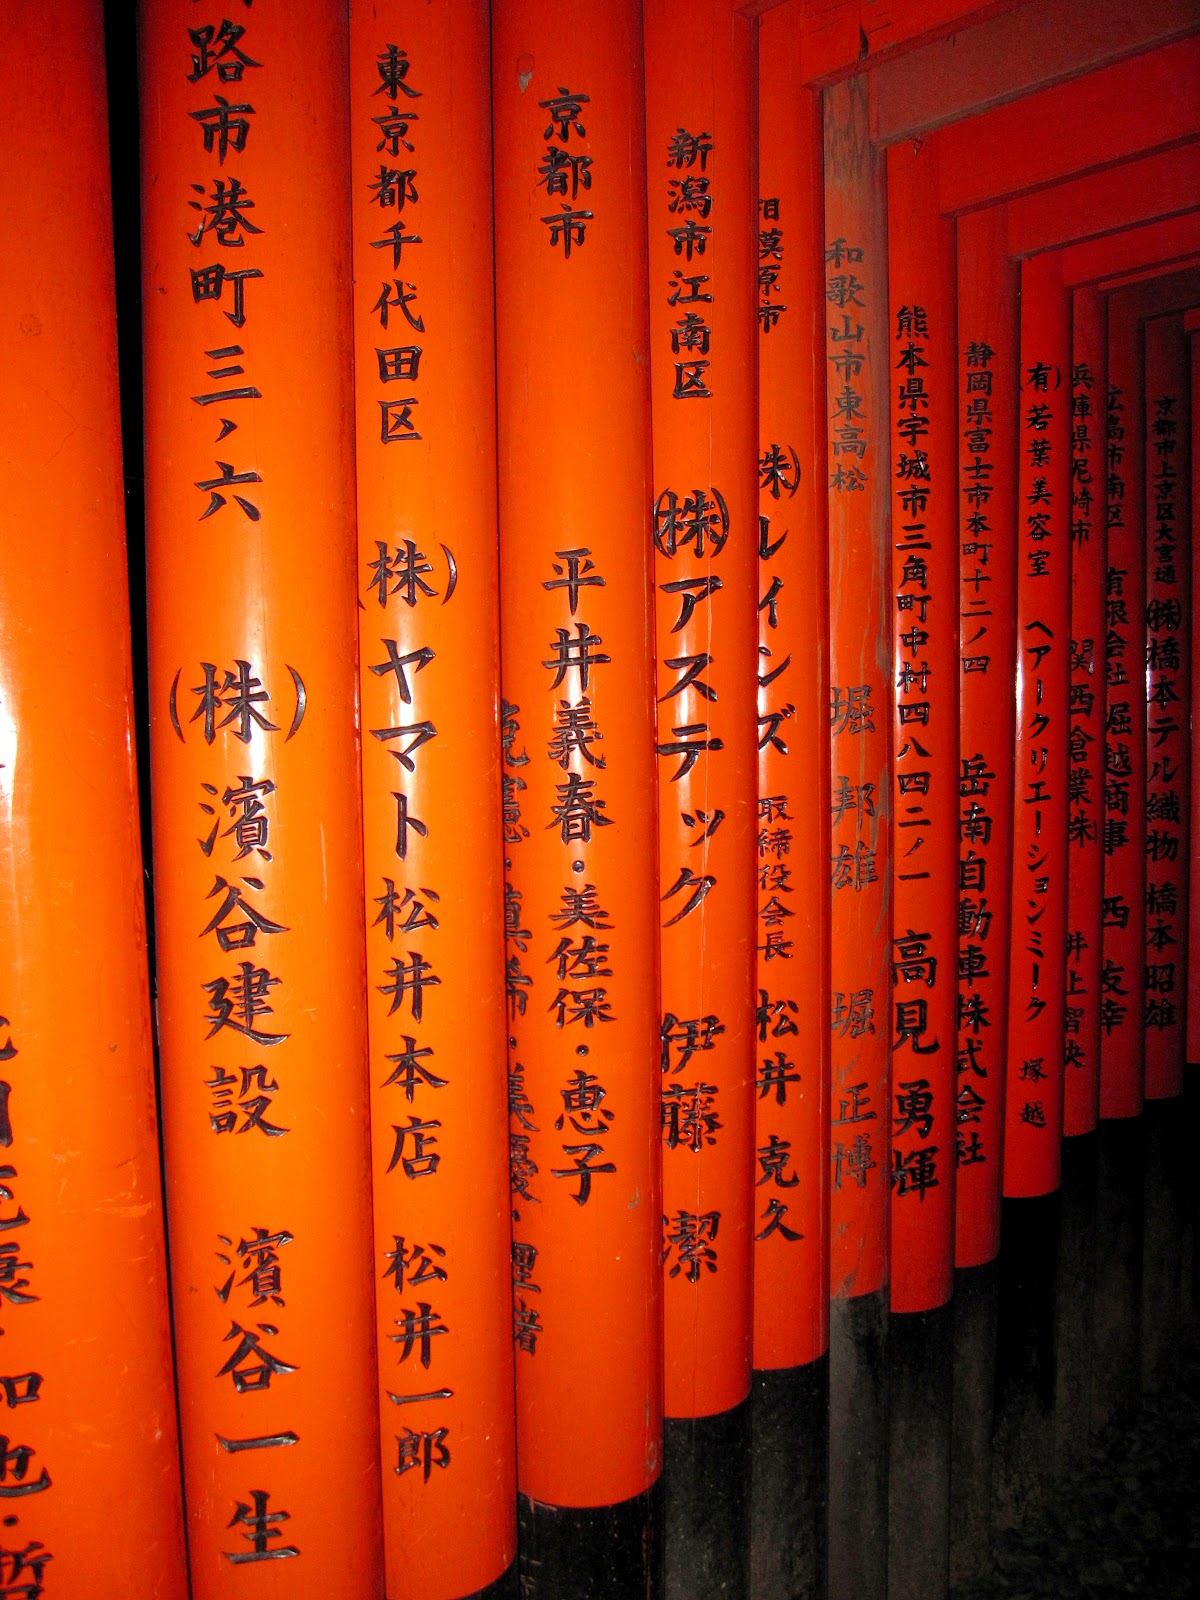 路市港町三ノ六 (株)濱谷建設 濱谷一生
東京都千代田区 (株)ヤマト松井本店 松井一郎
京都市 平井義春・美佐保・恵子
新潟市江南区 (株)アステック 伊藤 潔
相模原市 (株)レインズ 取締役会長 松井 克久
和歌山市東高松 堀 邦雄 堀 正博
熊本県宇城市三角町中村四八四二ノ一 高見 勇輝
静岡県富士市本町十二ノ四 岳南自動車株式会社
(有)若葉美容室 ヘアークリエーションミーク 塚越
兵庫県尼崎市 関西倉業(株) 井上智央
広島市南区 有限会社堀越商事 西 友幸
京都市上京区大宮通 (株)橋本テル織物 橋本昭雄